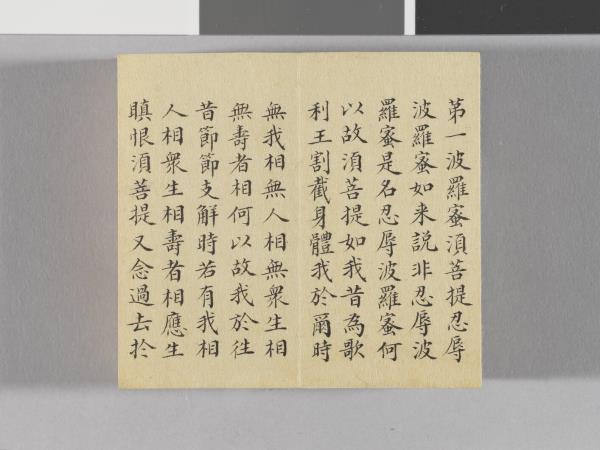 第一波羅蜜須菩提忍辱
波羅蜜如来說非忍辱波
羅蜜是名忍辱波羅蜜何
以故須菩提如我昔為歌
利王割截身體我於爾時
無我相無人相無衆生相
無壽者相何以故我於往
昔節節支解時若有我相
人相衆生相壽者相應生
瞋恨須菩提又念過去於